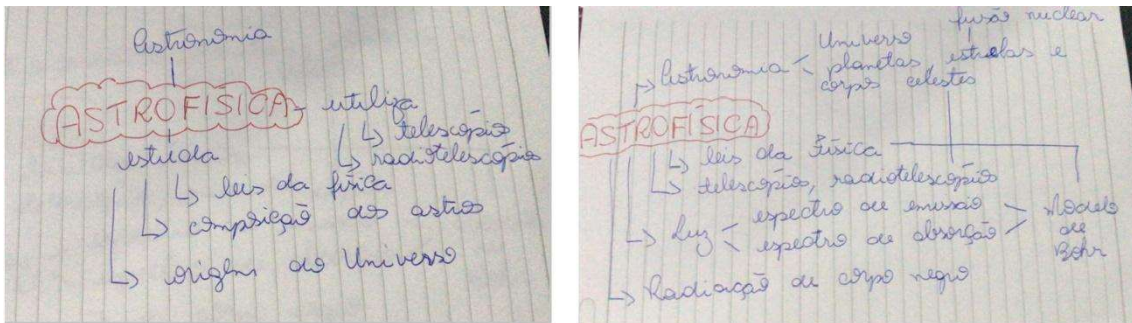 Astronomia
ASTROFÍSICA utiliza
telescópio
estuda radiotelescópio
leis da física
composição dos astros
origem do Universo
fusão nuclear
Universo
Astronomia planetas, estrelas e
corpos celestes
ASTROFÍSICA
leis da Física
telescópio, radiotelescópio
espectro de emissão Modelo
Luz espectro de absorção de
Bohr
Radiação de corpo negro